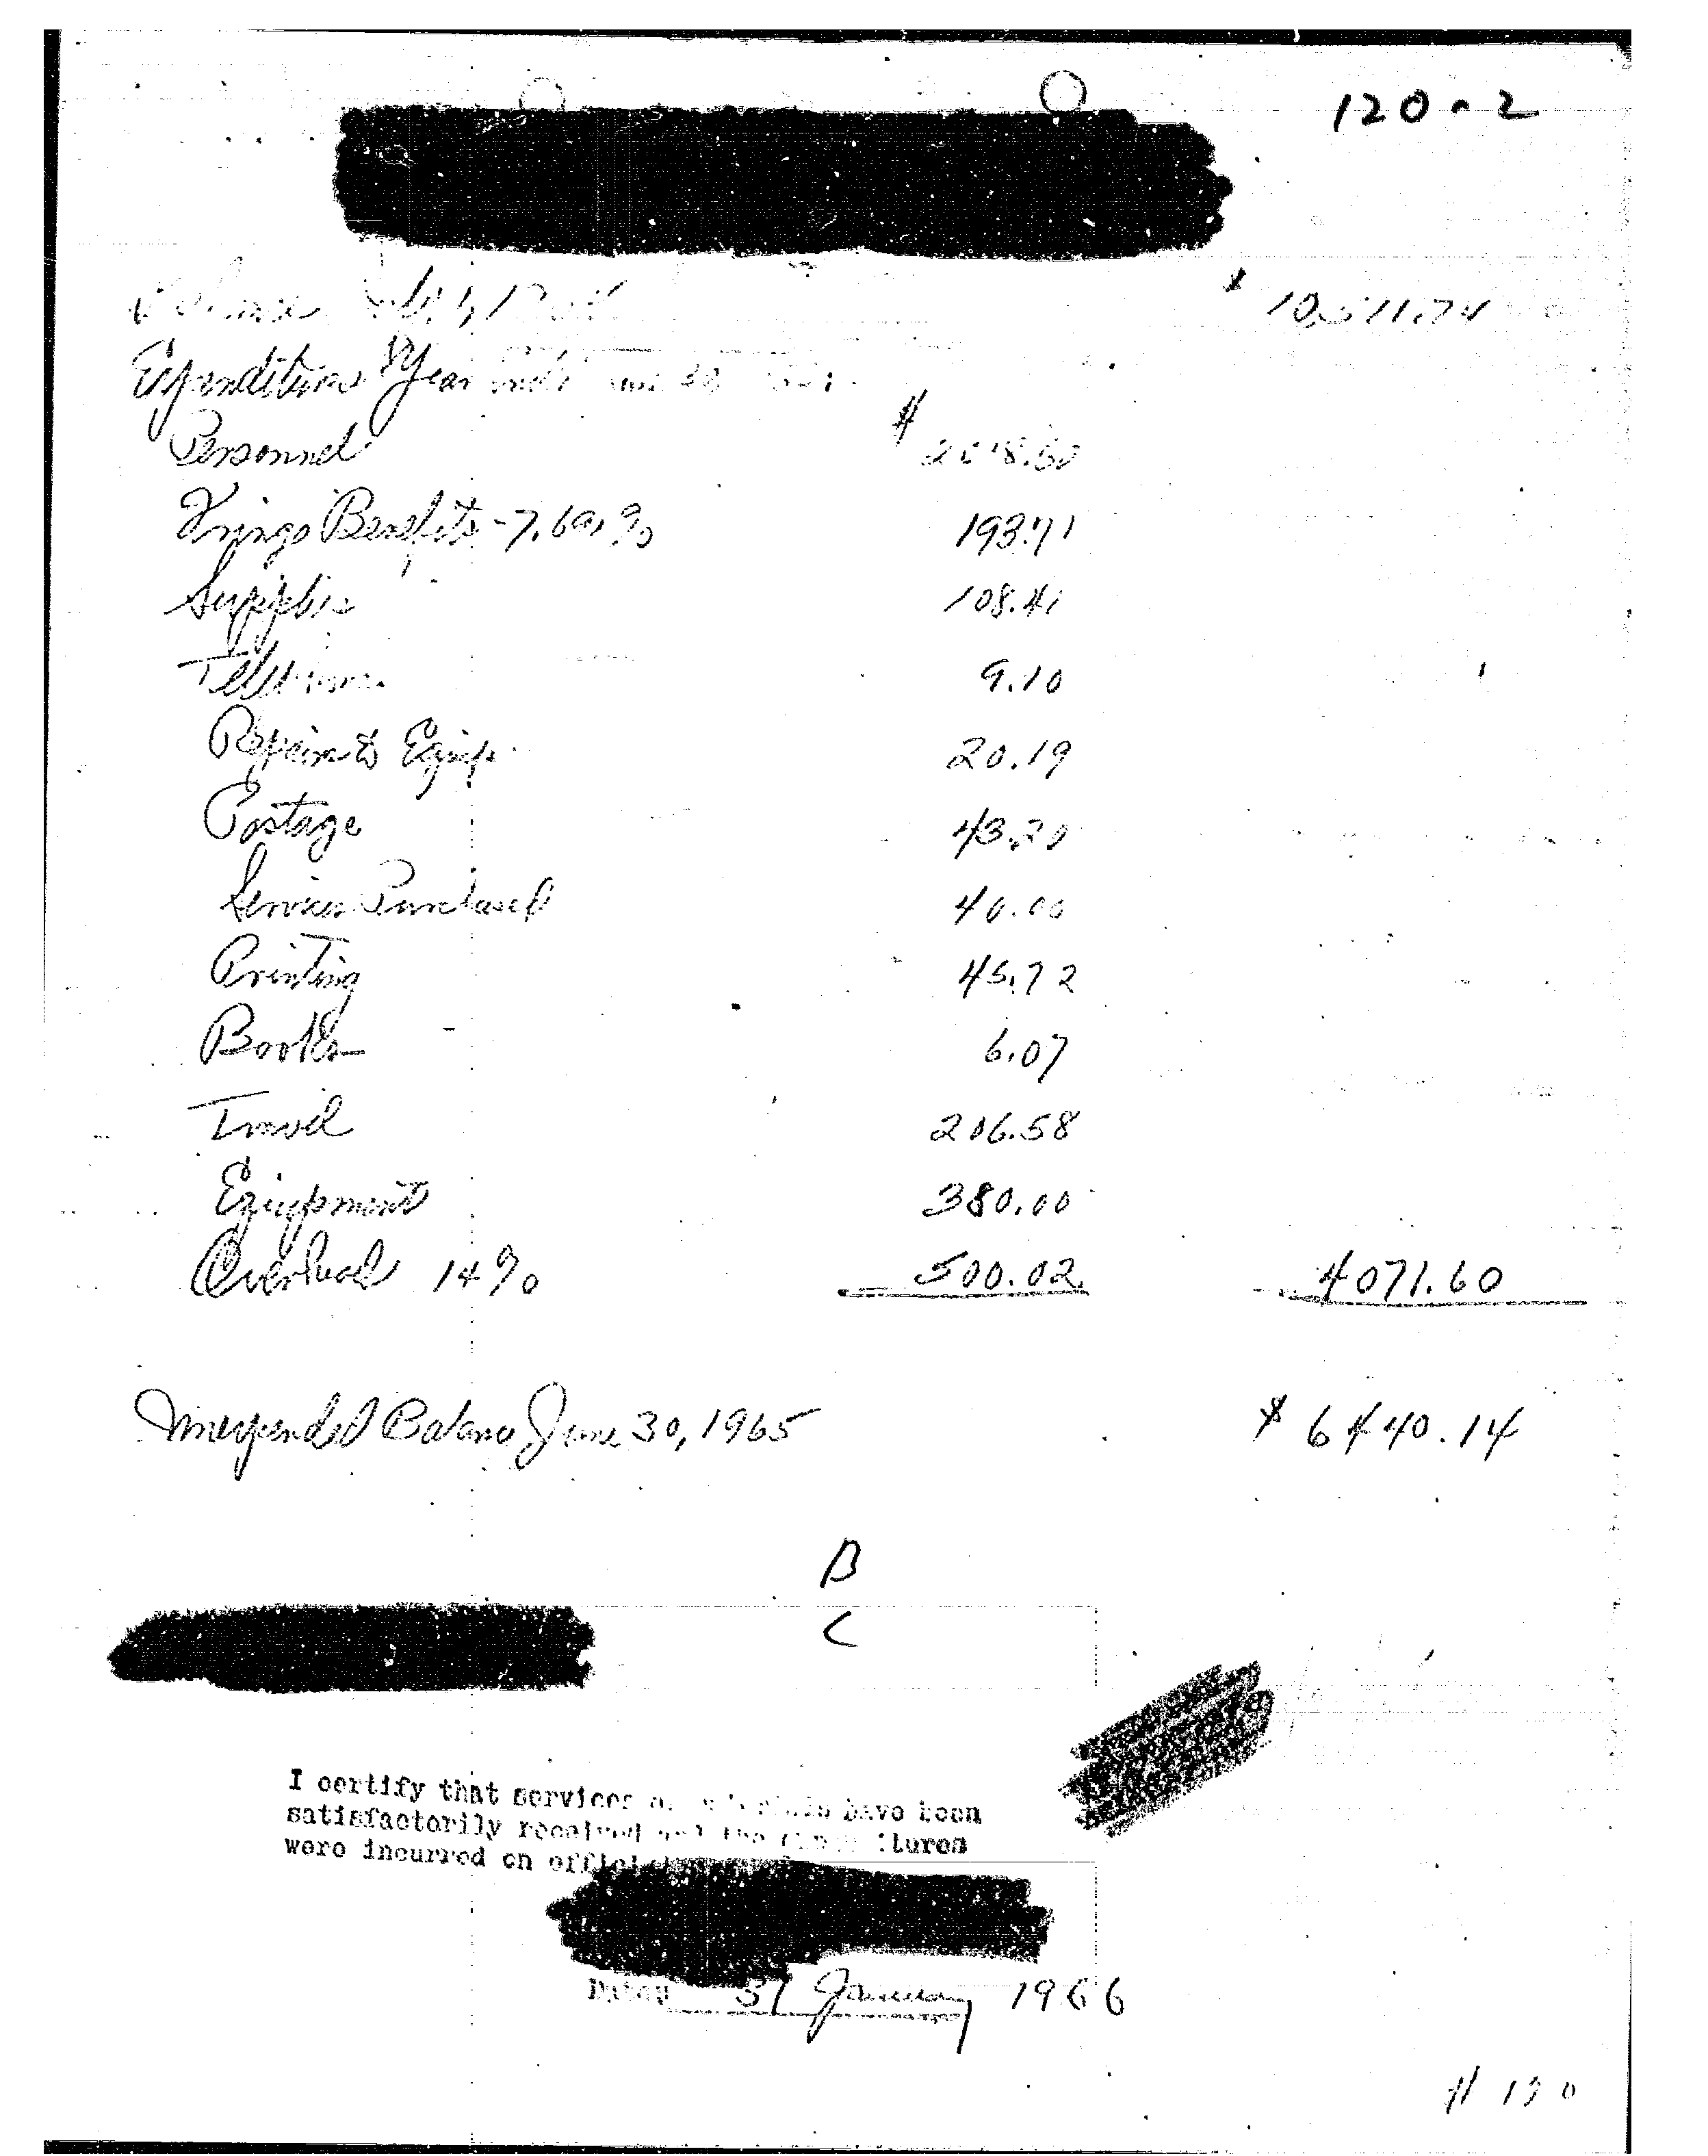 120-2
Balance July 1, $ 10,511.74
Expenditures Year
Personnel $
Fringe Benefits - 7.69% 193.71
Supplies 108.41
Telephone 9.10
Repairs to Equip. 20.19
Postage 43.20
Services Purchased 40.00
Printing 45.72
Books 6.07
Travel 206.58
Equipment 380.00
Overhead 14% 500.02 4071.60
Unexpended Balance June 30, 1965 $ 6440.14
B
C
I certify that services have been
satisfactorily received and the
were incurred on official
Date 31 January 1966